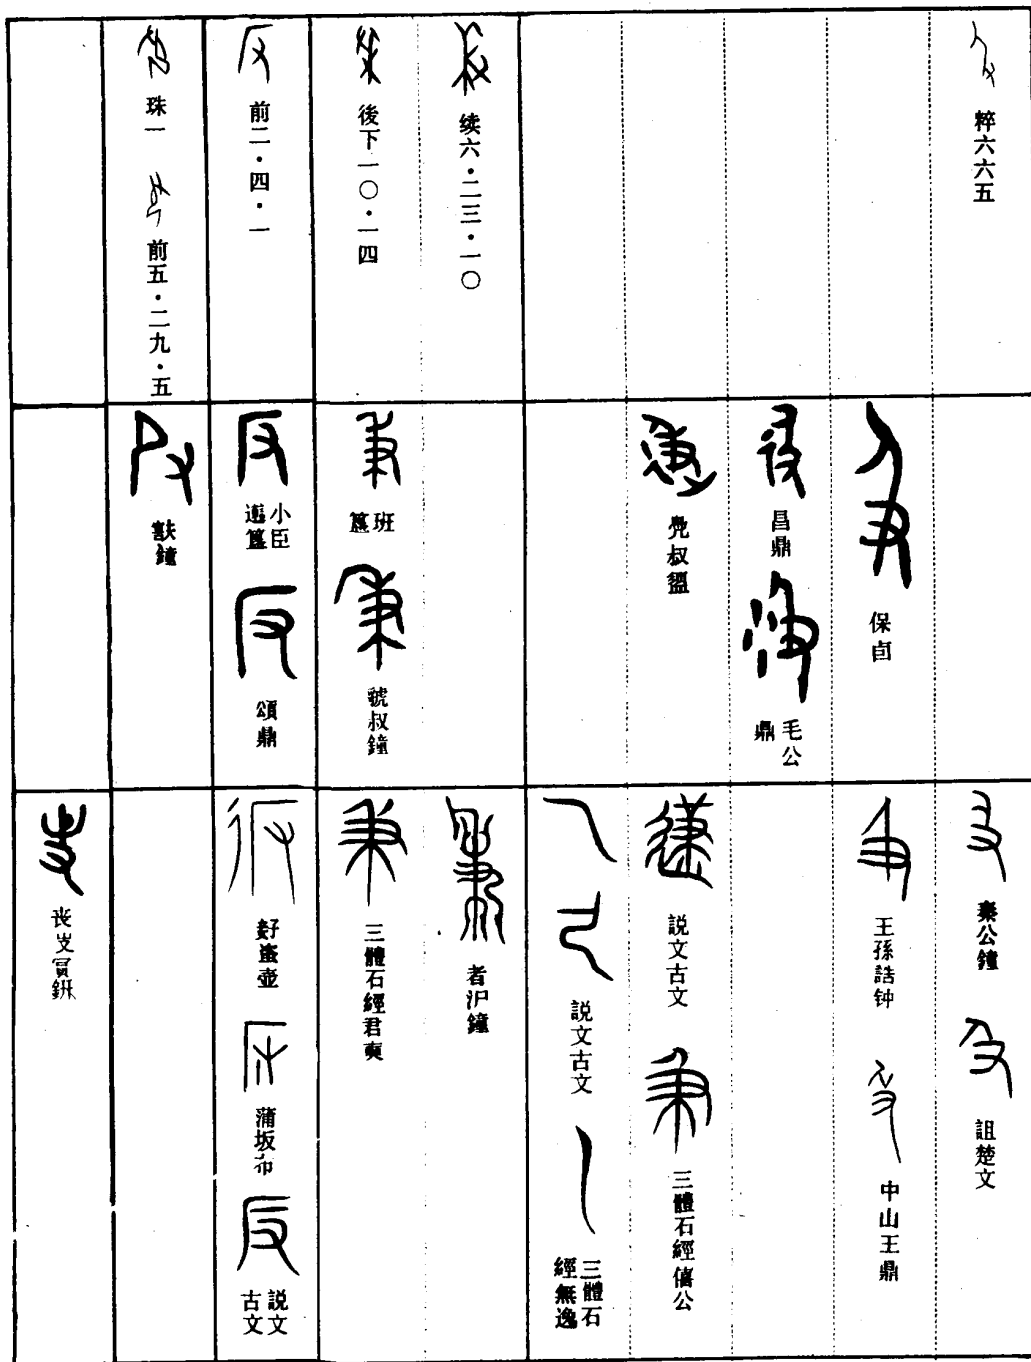 粹六六五
续六·二三·一〇
後下一〇·一四
前二·四·一
珠一
前五·二九·五
保卣
昌鼎
毛公鼎
叔盨
班簋
虢叔鐘
小臣簋
頌鼎
㝬鐘
秦公鐘
詛楚文
王孫誥钟
中山王鼎
説文古文
三體石經僖公
説文古文
三體石經無逸
者沪鐘
三體石經君奭
蚉壶
蒲坂布
説文古文